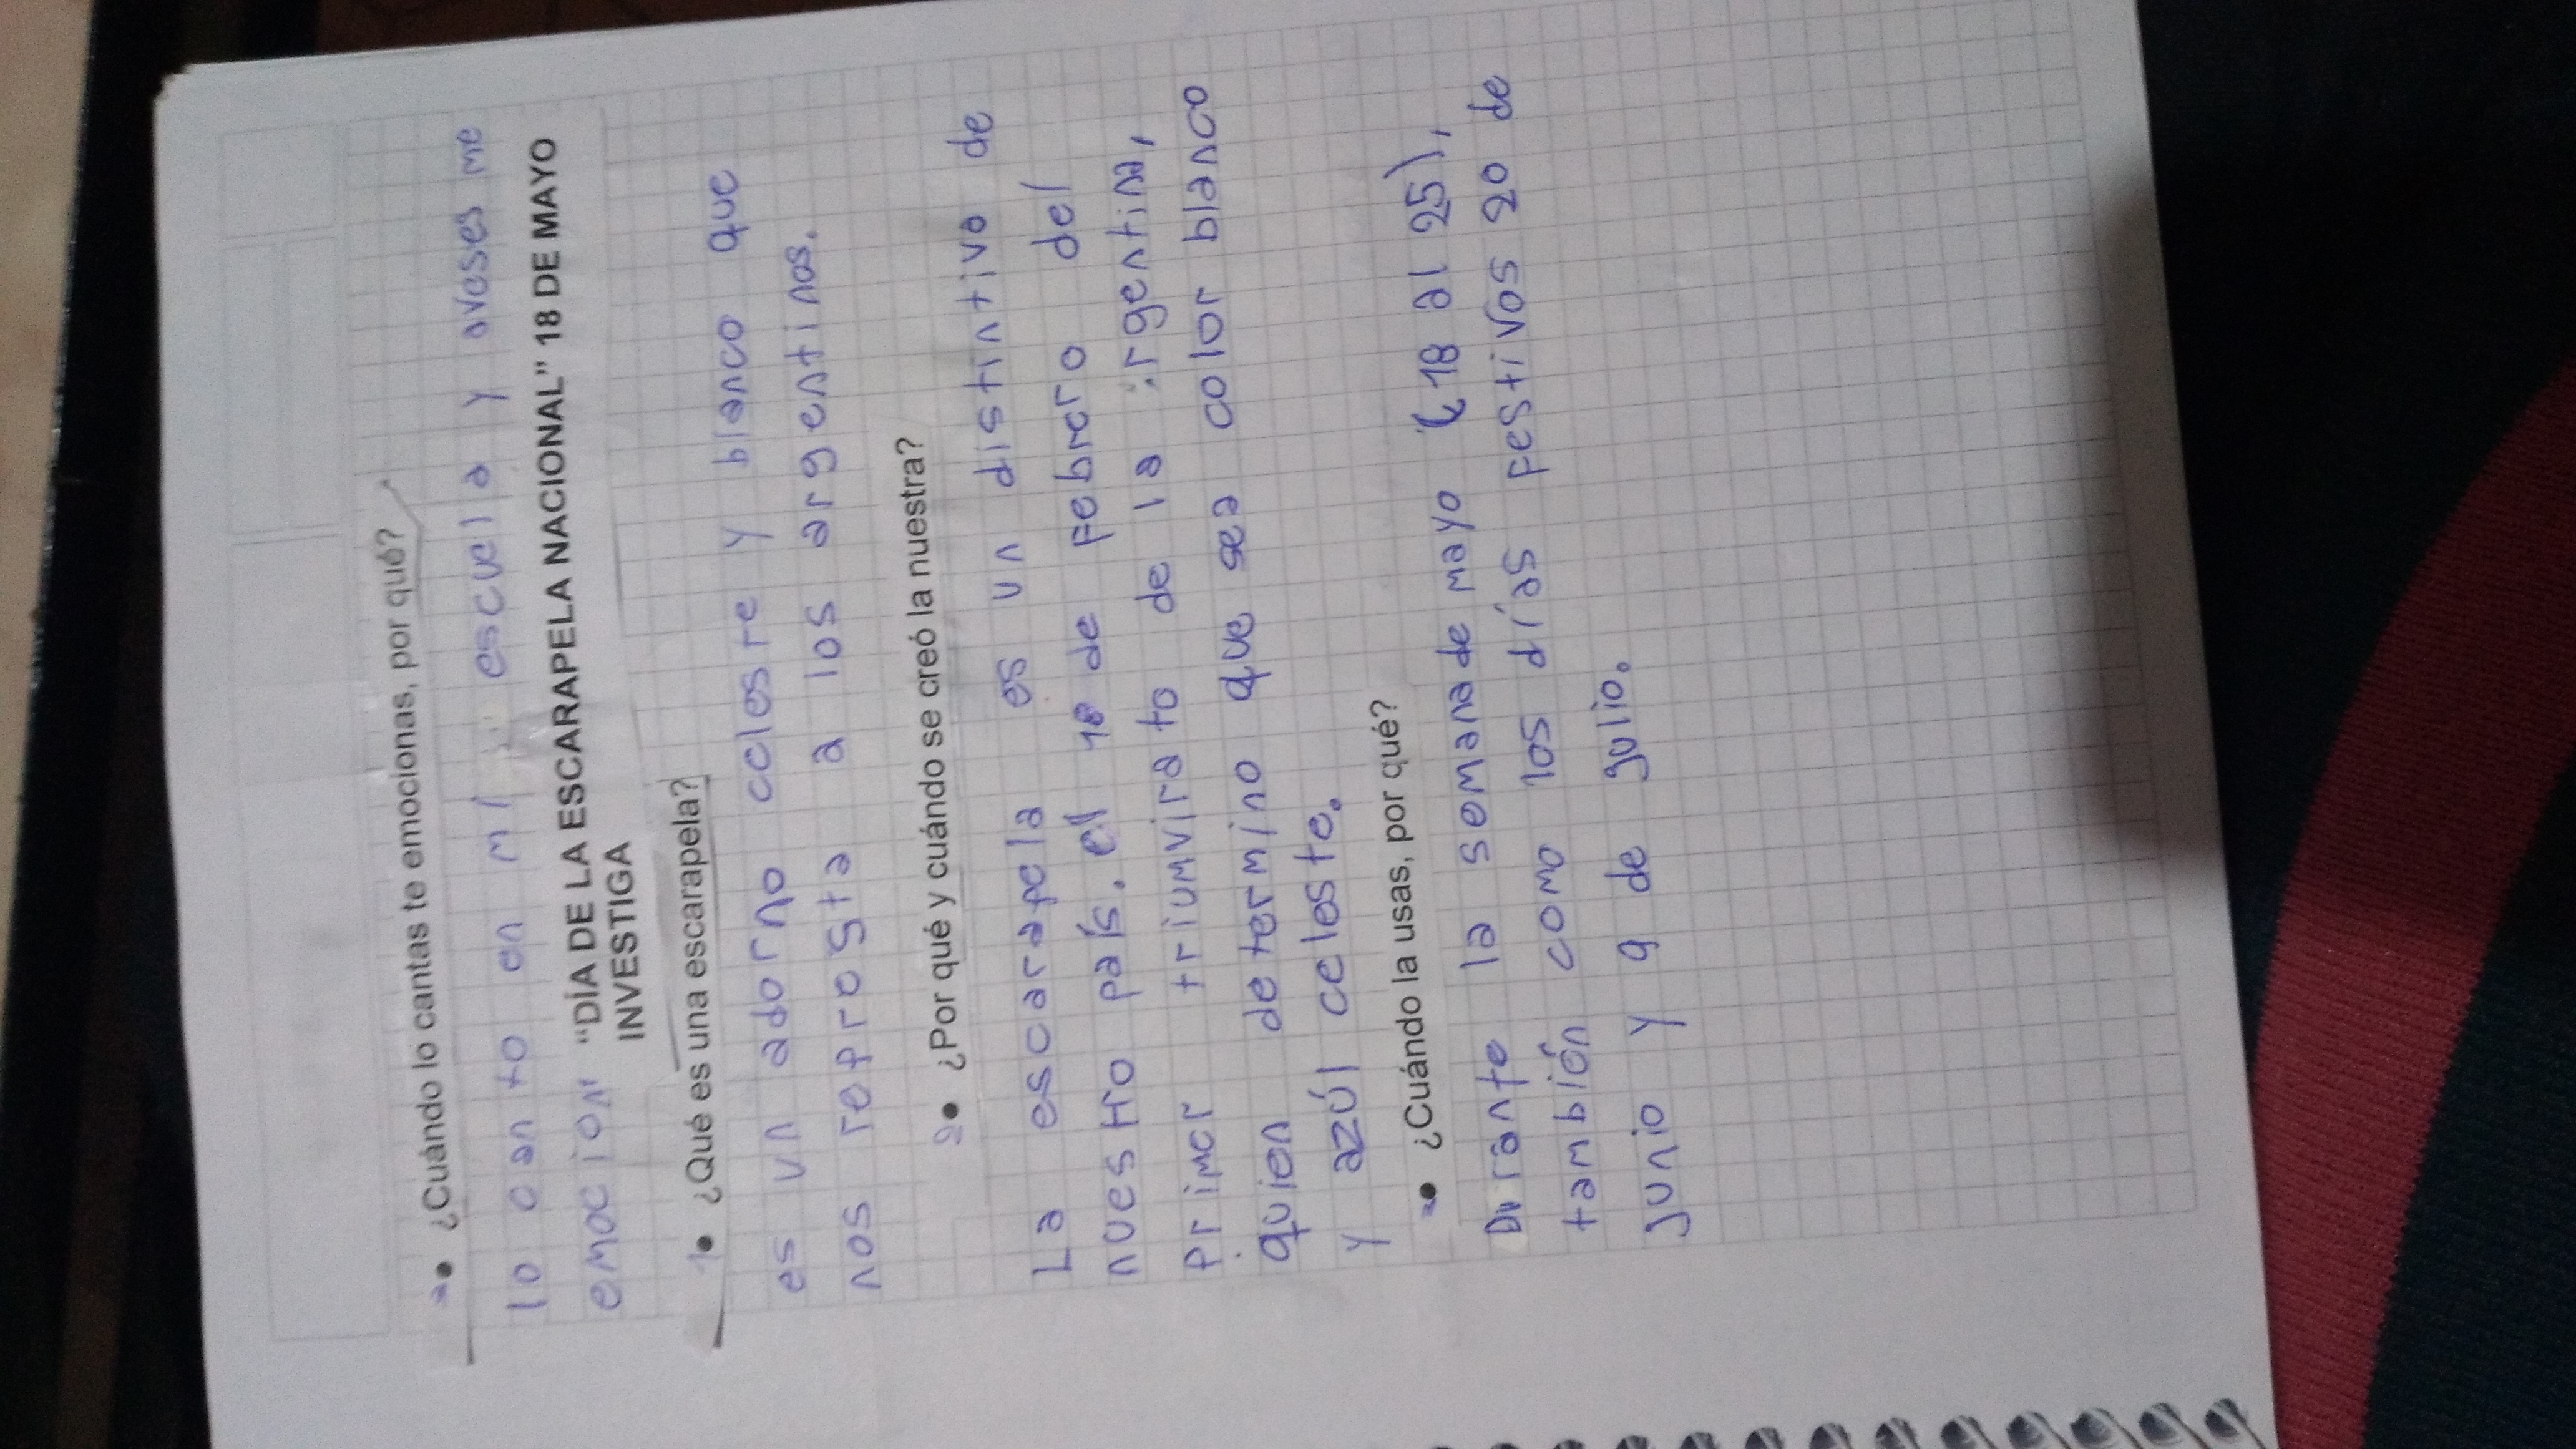 ¿Cuándo lo cantas te emocionas, por qué?
lo canto en mi escuela y aveses me
emocion
"DÍA DE LA ESCARAPELA NACIONAL" 18 DE MAYO
INVESTIGA
1• ¿Qué es una escarapela?
es un adorno celeste y blanco que
nos represta a los argentinos.
2• ¿Por qué y cuándo se creó la nuestra?
La escarapela es un distintivo de
nuestro país. el 18 de Febrero del
primer triumvirato de la :rgentina,
quien determino que sea color blanco
y azúl celeste.
• ¿Cuándo la usas, por qué?
Durante la semana de mayo (18 al 25),
también como los días festivos 20 de
junio y 9 de julio.